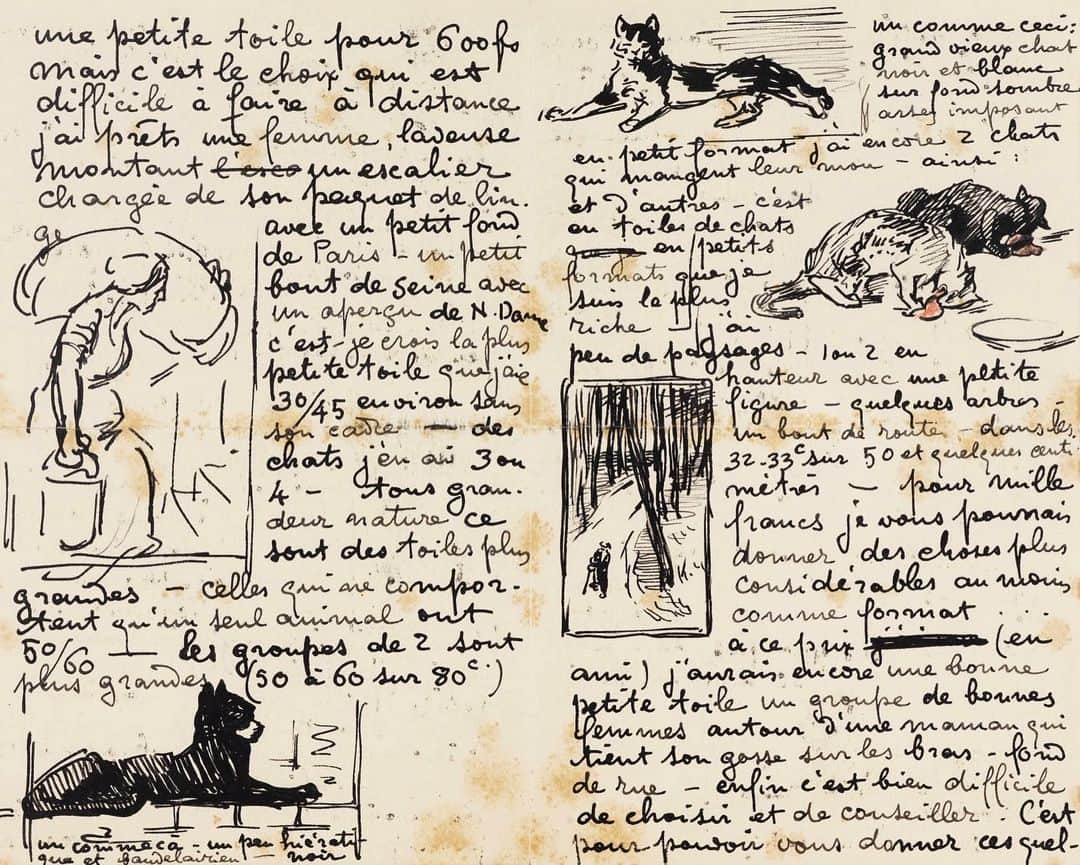 une petite toile pour 600fs
mais c'est le choix qui est
difficile à faire à distance
j'ai prêts une femme, laveuse
montant un escalier
chargée de son paquet de lin.
ge
avec un petit fond
de Paris - un petit
bout de seine avec
un aperçu de N. Dame
c'est - je crois la plus
petite toile que j'aie
30/45 environ sans
son cadre — des
chats j'en ai 3 ou
4 - tous gran.
deur nature ce
sont des toiles plus
grandes - celles qui ne compor-
tent qu'un seul animal ont
50/60 — les groupes de 2 sont
plus grandes (50 à 60 sur 80c.)
un comme ça - un peu hiérati-
que et baudelairien - noir
un comme ceci:
grand vieux chat
noir et blanc
sur fond sombre
assez imposant
en petit format j'ai encore 2 chats
qui mangent leur mou - ainsi :
et d'autres - c'est
en toiles de chats
en petits
formats que je
suis le plus
riche j'ai
peu de paysages - 1 ou 2 en
hauteur avec une petite
figure - quelques arbres -
un bout de route - dans les
32-33c sur 50 et quelques centi-
mètres - pour mille
francs je vous pourrais
donner des choses plus
considérables au moins
comme format
à ce prix (en
ami) j'aurais encore une bonne
petite toile un groupe de bonnes
femmes autour d'une maman qui
tient son gosse sur les bras - fond
de rue - enfin c'est bien difficile
de choisir et de conseiller. C'est
pour pouvoir vous donner ces quel-